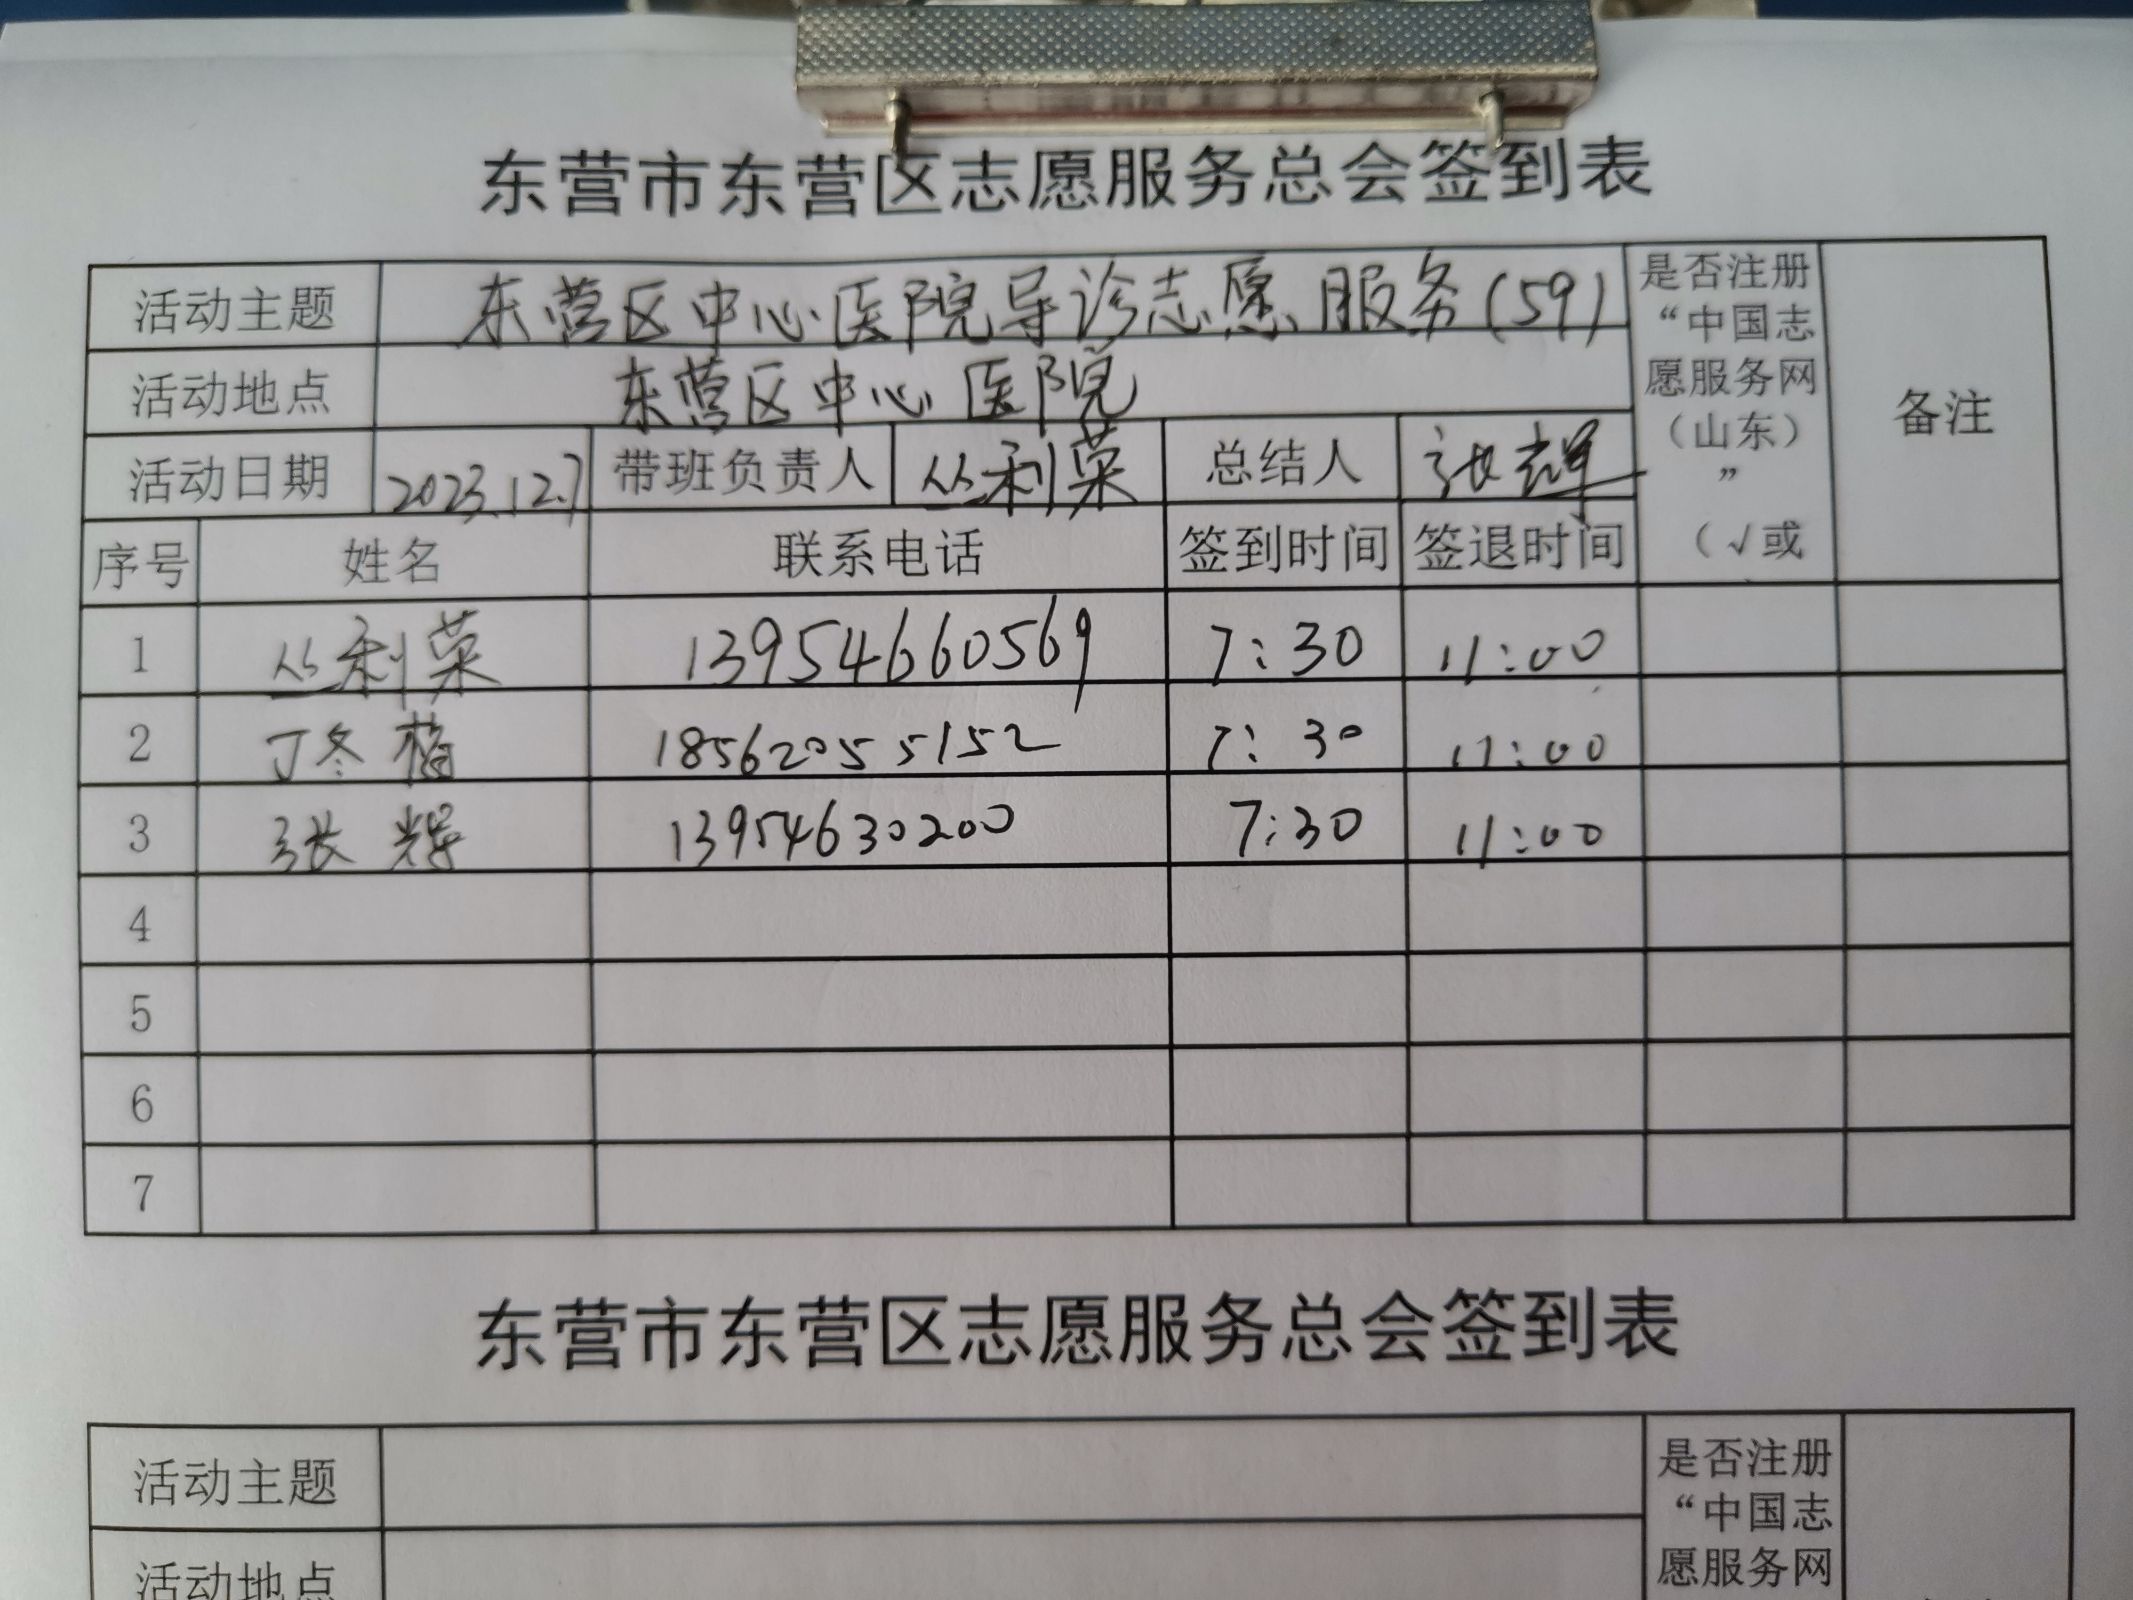 东营市东营区志愿服务总会签到表
活动主题 东营区中心医院导诊志愿服务(59)
活动地点 东营区中心医院
活动日期 2023.12.7 带班负责人 丛利荣 总结人 张辉
是否注册
“中国志
愿服务网
（山东）
”
（√或
备注
序号 姓名 联系电话 签到时间 签退时间
1 丛利荣 13954660569 7:30 11:00
2 丁冬梅 18562055152 7:30 11:00
3 张辉 13954630200 7:30 11:00
4
5
6
7
东营市东营区志愿服务总会签到表
活动主题
活动地点
是否注册
“中国志
愿服务网